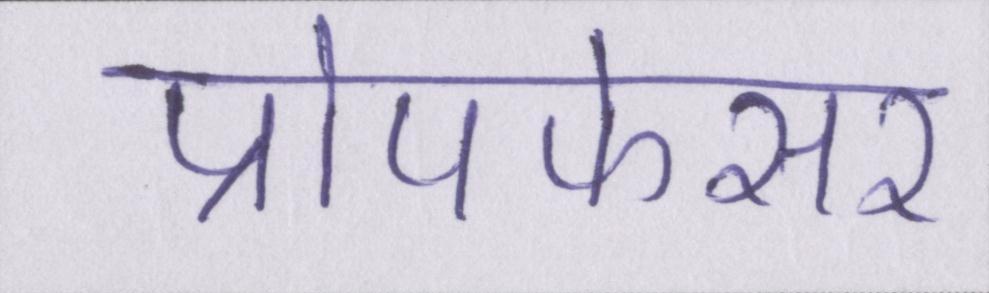 प्रोपफेसर